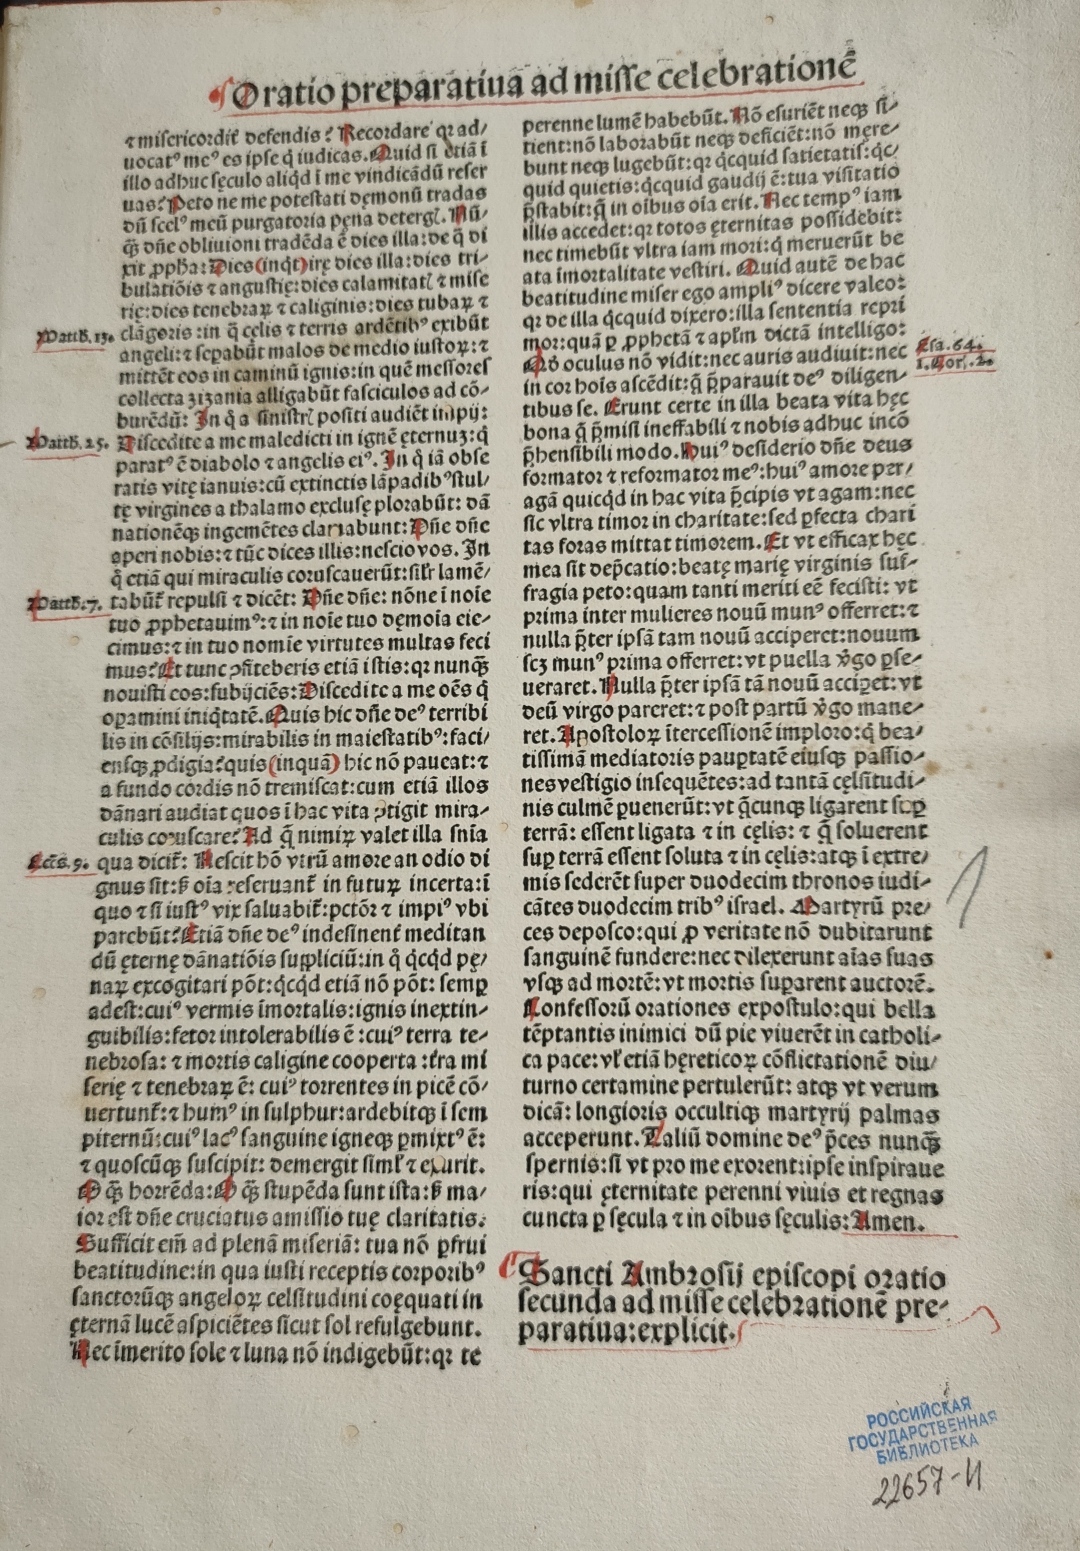 Oratio preparatiua ad misse celebrationē
⁊ misericordit̄ defendis? Recordare qꝛ ad/
uocatꝰ meꝰ es ipse q̇ iudicas. Quid si etiā ī
illo adhuc sęculo aliqd̄ ī me vindicādū reser
uas? Peto ne me potestati demonū tradas
dū scelꝰ meū purgatoria pęna deterg. Nū/
q̄ꝫ dn̄e obliuioni tradēda ē dies illa: de q̄ di
xit ꝓph̄a: Dies (inqt̄) irę dies illa: dies tri/
bulatiōis ⁊ angustię: dies calamitat ⁊ mise
rię: dies tenebraꝝ ⁊ caliginis: dies tubaꝝ ⁊
Matth. 13. clāgoris: in q̄ cęlis ⁊ terris ardētibꝰ exibūt
angeli: ⁊ sepabūt malos de medio iustoꝝ: ⁊
mittēt eos in caminū ignis: in quē messores
collecta zizania alligabūt fasciculos ad cō/
burēdū: In q̇ a sinistr positi audiēt impij:
Matth. 25. Discedite a me maledicti in ignē ęternuꝫ: q̇
paratꝰ ē diabolo ⁊ angelis eiꝰ. In q̇ iā obse
ratis vitę ianuis: cū extinctis lāpadibꝰ stul/
tę virgines a thalamo exclusę plorabūt: dā
nationēqꝫ ingemētes clamabunt: Dn̄e dn̄e
aperi nobis: ⁊ tūc dices illis: nescio vos. In
q̇ etiā qui miraculis coruscauerūt: silr lamē/
Matth. 7. tabūt̄ repulsi ⁊ dicēt: Dn̄e dn̄e: nōne ī noīe
tuo ꝓphetauimꝰ: ⁊ in noīe tuo dęmoīa eie/
cimus: ⁊ in tuo nomīe virtutes multas feci
mus? Et tunc ꝯfiteberis etiā istis: qꝛ nunq̄ꝫ
nouisti eos: subijciēs: Discedite a me oēs q̇
opamini iniqtatē. Quis hic dn̄e deꝰ terribi
lis in cōsilijs: mirabilis in maiestatibꝰ: faci/
ensqꝫ ꝓdigia? quis (inquā) hic nō paueat: ⁊
a fundo cordis nō tremiscat: cum etiā illos
dānari audiat quos ī hac vita ꝯtigit mira/
culis coruscare? Ad q̄ nimiꝝ valet illa snīa
Eccs. 9. qua dicit̄: Nescit hō vtrū amore an odio di
gnus sit: ꝫ oīa reseruant̄ in futuꝝ incerta: ī
quo ⁊ si iustꝰ vix saluabit̄: pctōr ⁊ impiꝰ vbi
parebūt? Etiā dn̄e deꝰ indesinent̄ meditan
dū ęternę dānatiōis suppliciū: in q̇ qcqd pę/
naꝝ excogitari pōt: qcqd etiā nō pōt: semꝑ
adest: cuiꝰ vermis īmortalis: ignis inextin-
guibilis: fetor intolerabilis ē: cuiꝰ terra te-
nebrosa: ⁊ mortis caligine cooperta: t̄ra mi
serię ⁊ tenebraꝝ ē: cuiꝰ torrentes in picē cō/
uertunt̄: ⁊ humꝰ in sulphur: ardebitqꝫ ī sem
piternū: cuiꝰ lacꝰ sanguine igneqꝫ ꝑmixtꝰ ē:
⁊ quoscūqꝫ suscipit: demergit siml ⁊ exurit.
O q̄ꝫ horrēda: O q̄ꝫ stupēda sunt ista: ꝫ ma/
ior est dn̄e cruciatus amissio tuę claritatis.
Sufficit em̄ ad plenā miseriā: tua nō ꝑfrui
beatitudine: in qua iusti receptis corporibꝰ
sanctorūqꝫ angeloꝝ celsitudini coęquati in
ęternā lucē aspiciētes sicut sol refulgebunt.
Nec īmerito sole ⁊ luna nō indigebūt: qꝛ te
perenne lumē habebūt. Nō esuriēt neqꝫ si/
tient: nō laborabūt neqꝫ deficiēt: nō męre/
bunt neqꝫ lugebūt: qꝛ qcquid satietatis: qc/
quid quietis: qcquid gaudij ē: tua visitatio
p̄stabit: q̄ in oībus oīa erit. Nec tempꝰ iam
illis accedet: qꝛ totos ęternitas possidebit:
nec timebūt vltra iam mori: q̇ meruerūt be
ata īmortalitate vestiri. Quid autē de hac
beatitudine miser ego ampliꝰ dicere valeo:
qꝛ de illa qcquid dixero: illa sententia repri
mor: quā ꝑ ꝓphetā ⁊ apłm dictā intelligo:
Qd̄ oculus nō vidit: nec auris audiuit: nec Esa. 64.
in cor hoīs ascēdit: q̄ p̄parauit deꝰ diligen/ 1. Cor. 2.
tibus se. Erunt certe in illa beata vita hęc
bona q̄ p̄misi ineffabili ⁊ nobis adhuc incō
p̄hensibili modo. Huiꝰ desiderio dn̄e deus
formator ⁊ reformator meꝰ: huiꝰ amore per/
agā quicqd in hac vita p̄cipis vt agam: nec
sic vltra timor in charitate: sed ꝑfecta chari
tas foras mittat timorem. Et vt efficax hęc
mea sit dep̄catio: beatę marię virginis suf-
fragia peto: quam tanti meriti eē fecisti: vt
prima inter mulieres nouū munꝰ offerret: ⁊
nulla p̄ter ipsā tam nouū acciperet: nouum
scꝫ munꝰ prima offerret: vt puella v̇go ꝑse-
ueraret. Nulla p̄ter ipsā tā nouū acciꝑet: vt
deū virgo pareret: ⁊ post partū v̇go mane/
ret. Apostoloꝝ ītercessionē imploro: q̇ bea/
tissimā mediatoris pauꝑtatē eiusqꝫ passio/
nes vestigio insequētes: ad tantā cęlsitudi/
nis culmē ꝑuenerūt: vt q̄cunqꝫ ligarent suꝑ
terrā: essent ligata ⁊ in cęlis: ⁊ q̄ soluerent
suꝑ terrā essent soluta ⁊ in cęlis: atqꝫ ī extre/
mis sederēt super duodecim thronos iudi/
cātes duodecim tribꝰ israel. Martyrū pre/
ces deposco: qui ꝓ veritate nō dubitarunt
sanguinē fundere: nec dilexerunt aīas suas
vsqꝫ ad mortē: vt mortis suꝑarent auctorē.
Confessorū orationes expostulo: qui bella
tēptantis inimici dū pie viuerēt in catholi/
ca pace: vl etiā hęreticoꝝ cōflictationē diu/
turno certamine pertulerūt: atqꝫ vt verum
dicā: longioris occultiqꝫ martyrij palmas
acceperunt. Taliū domine deꝰ p̄ces nunq̄ꝫ
spernis: si vt pro me exorent: ipse inspiraue
ris: qui ęternitate perenni viuis et regnas
cuncta ꝑ sęcula ⁊ in oībus sęculis: Amen.
Sancti Ambrosij episcopi oratio
secunda ad misse celebrationē pre-
paratiua: explicit.
РОССИЙСКАЯ
ГОСУДАРСТВЕННАЯ
БИБЛИОТЕКА
22657-И